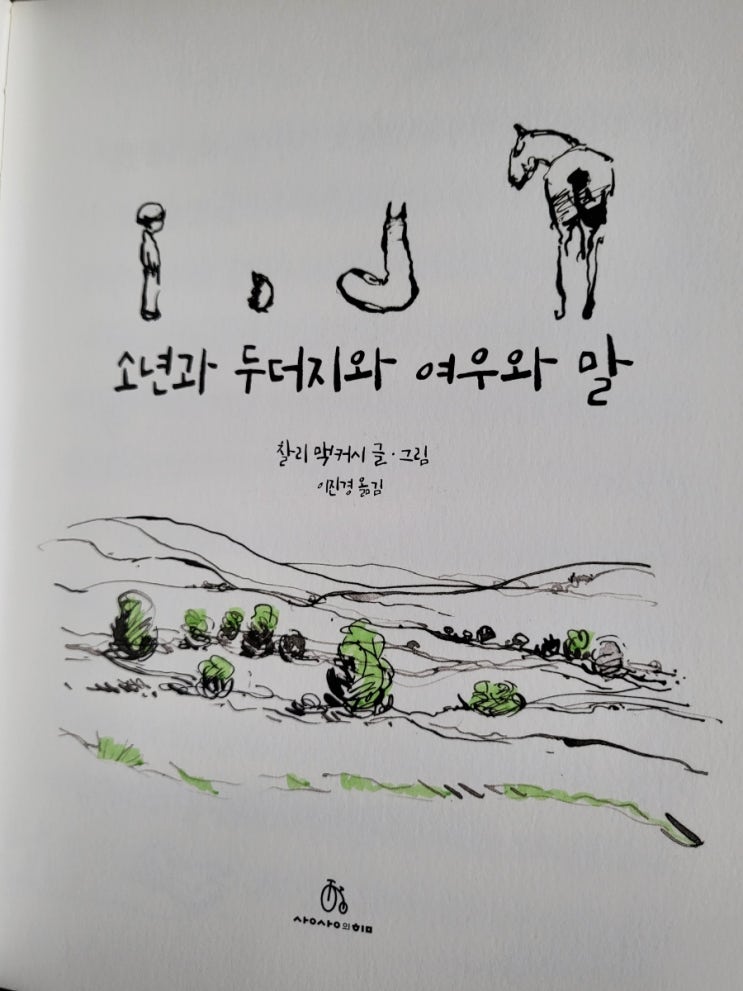 소년과 두더지와 여우와 말
찰리 맥커시 글·그림
이진경 옮김
상상의힘